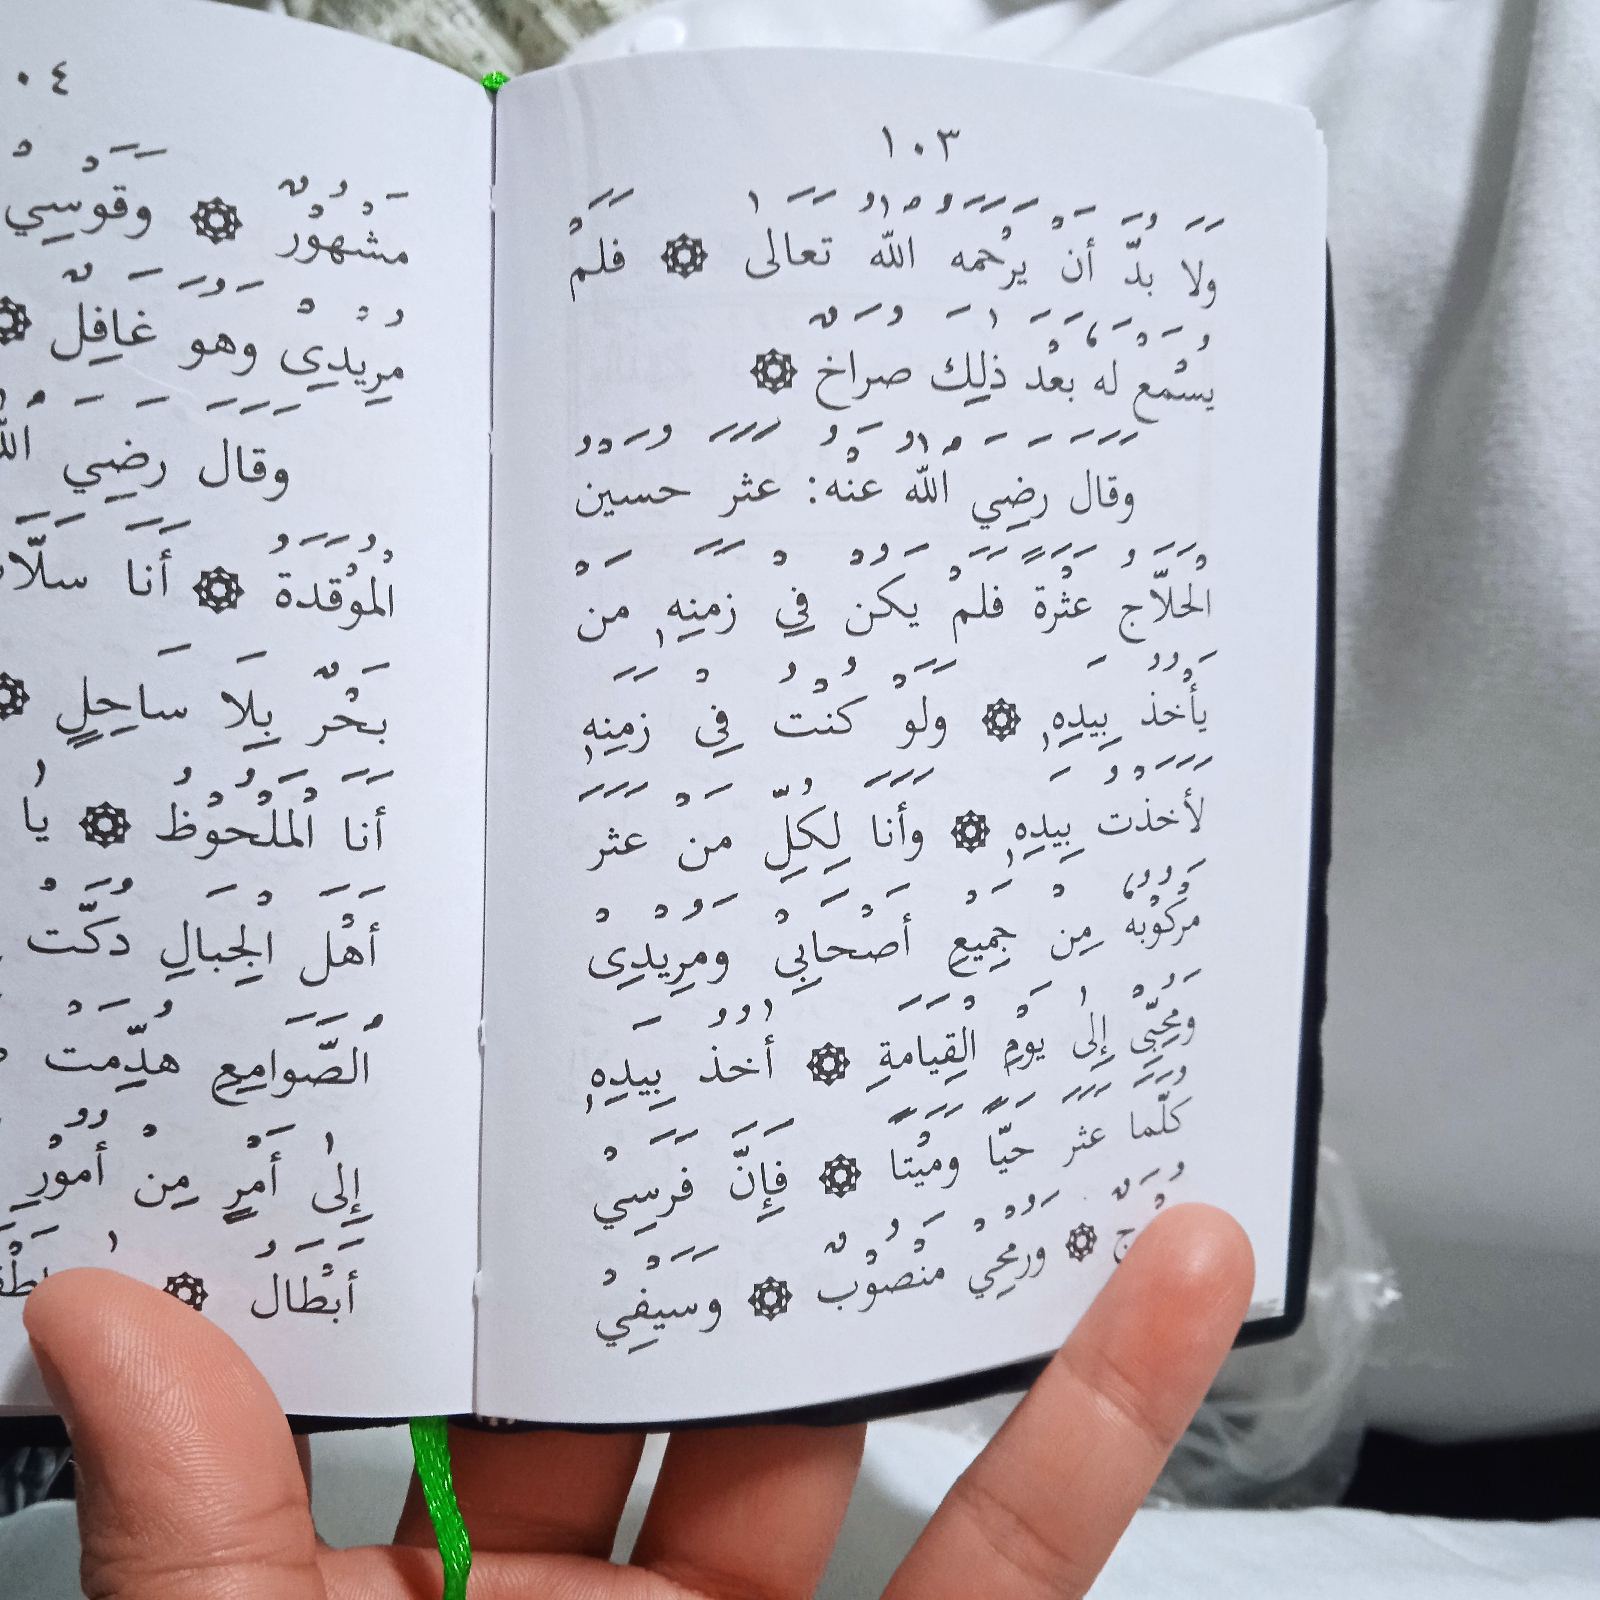 ١٠٣
وَلَا بُدَّ أَنْ يَرْحَمَهُ اللّٰهُ تَعَالٰى ۞ فَلَمْ
يُسْمَعْ لَهٗ بَعْدَ ذٰلِكَ صُرَاخٌ ۞
وَقَالَ رَضِيَ اللّٰهُ عَنْهُ: عَثَرَ حُسَيْنُ
الْحَلَّاجُ عَثْرَةً فَلَمْ يَكُنْ فِيْ زَمَنِهٖ مَنْ
يَأْخُذُ بِيَدِهٖ ۞ وَلَوْ كُنْتُ فِيْ زَمَنِهٖ
لَأَخَذْتُ بِيَدِهٖ ۞ وَأَنَا لِكُلِّ مَنْ عَثَرَ
مَرْكُوْبُهٗ مِنْ جَمِيْعِ أَصْحَابِيْ وَمُرِيْدِىْ
وَمُحِبِّىْ إِلٰى يَوْمِ الْقِيَامَةِ ۞ أٰخُذُ بِيَدِهٖ
كُلَّمَا عَثَرَ حَيًّا وَمَيْتًا ۞ فَإِنَّ فَرَسِيْ
۞ وَرُمْحِيْ مَنْصُوْبٌ ۞ وَسَيْفِيْ
٠٤
مَشْهُوْرٌ ۞ وَقَوْسِيْ
مُرِيْدِىْ وَهُوَ غَافِلٌ ۞
وَقَالَ رَضِيَ
الْمُوْقَدَةُ ۞ أَنَا
بَحْرٌ بِلَا سَاحِلٍ ۞
أَنَا الْمَلْحُوْظُ ۞ يَا
أَهْلَ الْجِبَالِ دُكَّتْ
الصَّوَامِعِ هُدِّمَتْ
إِلٰى أَمْرٍ مِنْ أُمُوْرِ
أَبْطَالُ ۞